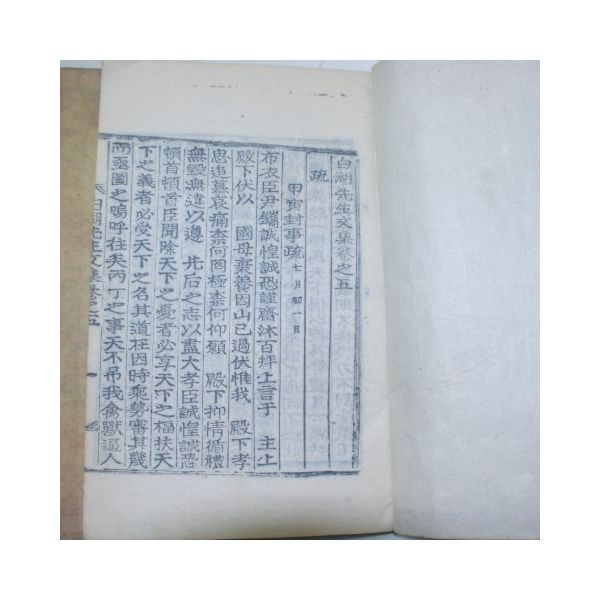 白湖先生文集卷之五
疏
甲寅封事疏 七月初一日
布衣臣尹鑴誠惶誠恐謹齋沐百拜上言于 主上
殿下伏以 國母棄養因山已過伏惟我 殿下孝
思追慕哀痛柰何罔極柰何仰願 殿下抑情循禮
無毁無違以遵 先后之志以盡大孝臣誠惶誠恐
頓首頓首臣聞除天下之憂者必享天下之福扶天
下之義者必受天下之名其道在因時乘勢審其幾
而亟圖之嗚呼往矣丙丁之事天不吊我禽獸逼人
白湖先生文集卷之五